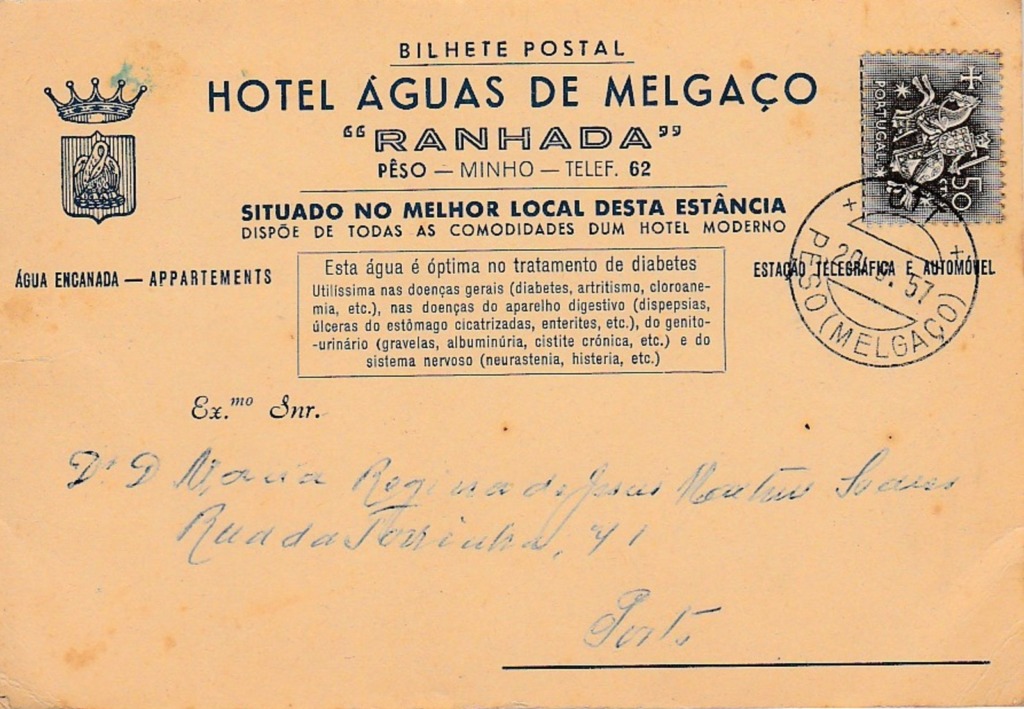 BILHETE POSTAL
HOTEL ÁGUAS DE MELGAÇO
“RANHADA”
PÊSO — MINHO — TELEF. 62
SITUADO NO MELHOR LOCAL DESTA ESTÂNCIA
DISPÕE DE TODAS AS COMODIDADES DUM HOTEL MODERNO
ÁGUA ENCANADA — APPARTEMENTS
Esta água é óptima no tratamento de diabetes
Utilíssima nas doenças gerais (diabetes, artritismo, cloroane-
mia, etc.), nas doenças do aparelho digestivo (dispepsias,
úlceras do estômago cicatrizadas, enterites, etc.), do genito-
-urinário (gravelas, albuminúria, cistite crónica, etc.) e do
sistema nervoso (neurastenia, histeria, etc.)
ESTAÇÃO TELEGRÁFICA E AUTOMÓVEL
PORTUGAL
50
CTT
57
PESO (MELGAÇO)
Ex.mo Snr.
Dr. D Maria Regina de Jesus Martins Soares
Rua da Torrinha, 41
Porto